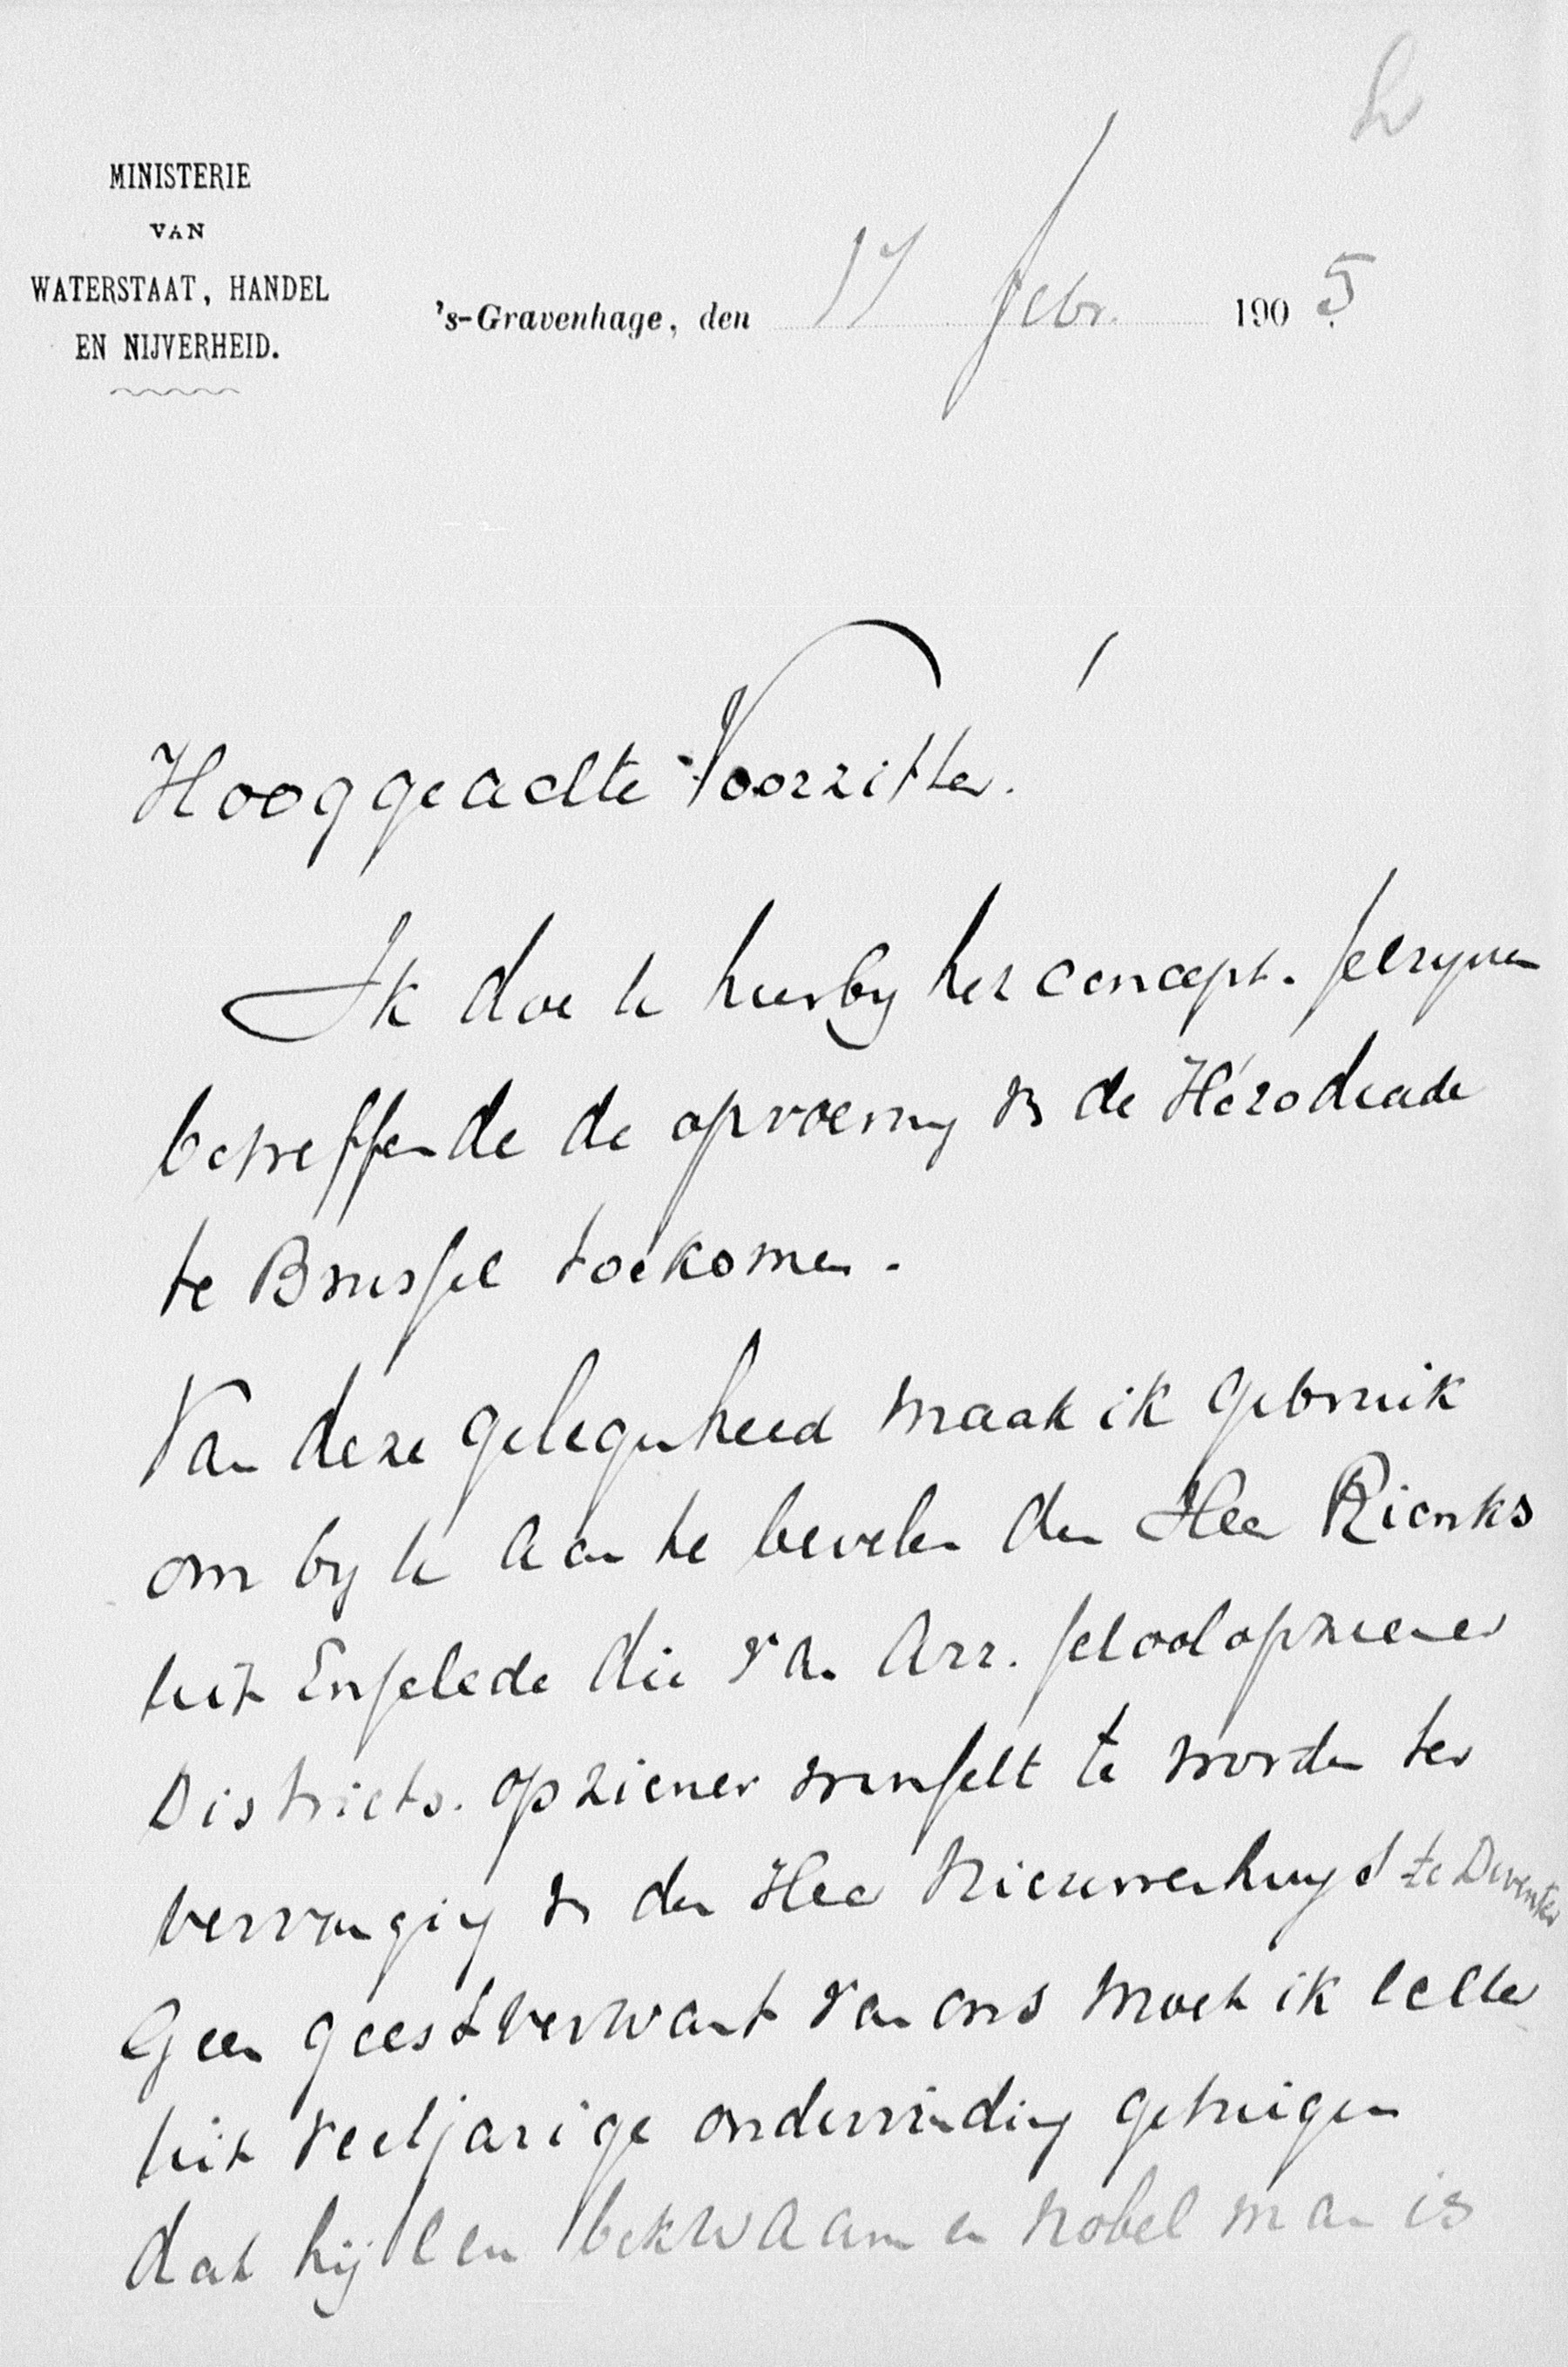 MINISTERIE
VAN
WATERSTAAT, HANDEL
EN NIJVERHEID.
's-Gravenhage, den 17 Febr. 1905
Hooggeachte Voorzitter!
Ik doe U hierby het concept-schryven
betreffende de opvoering v. de Hérodiade
te Brussel toekomen.
Van deze gelegenheid maak ik gebruik
om by U aan te bevelen den Heer Rienks
uit Enschede die van Arr. schoolopziener
Districts-opziener wenscht te worden ter
vervanging v. den Heer Nieuwenhuys te Deventer
Geen geestverwant van ons moet ik echter
uit veeljarige ondervinding getuigen
dat hij een bekwaam en nobel man is